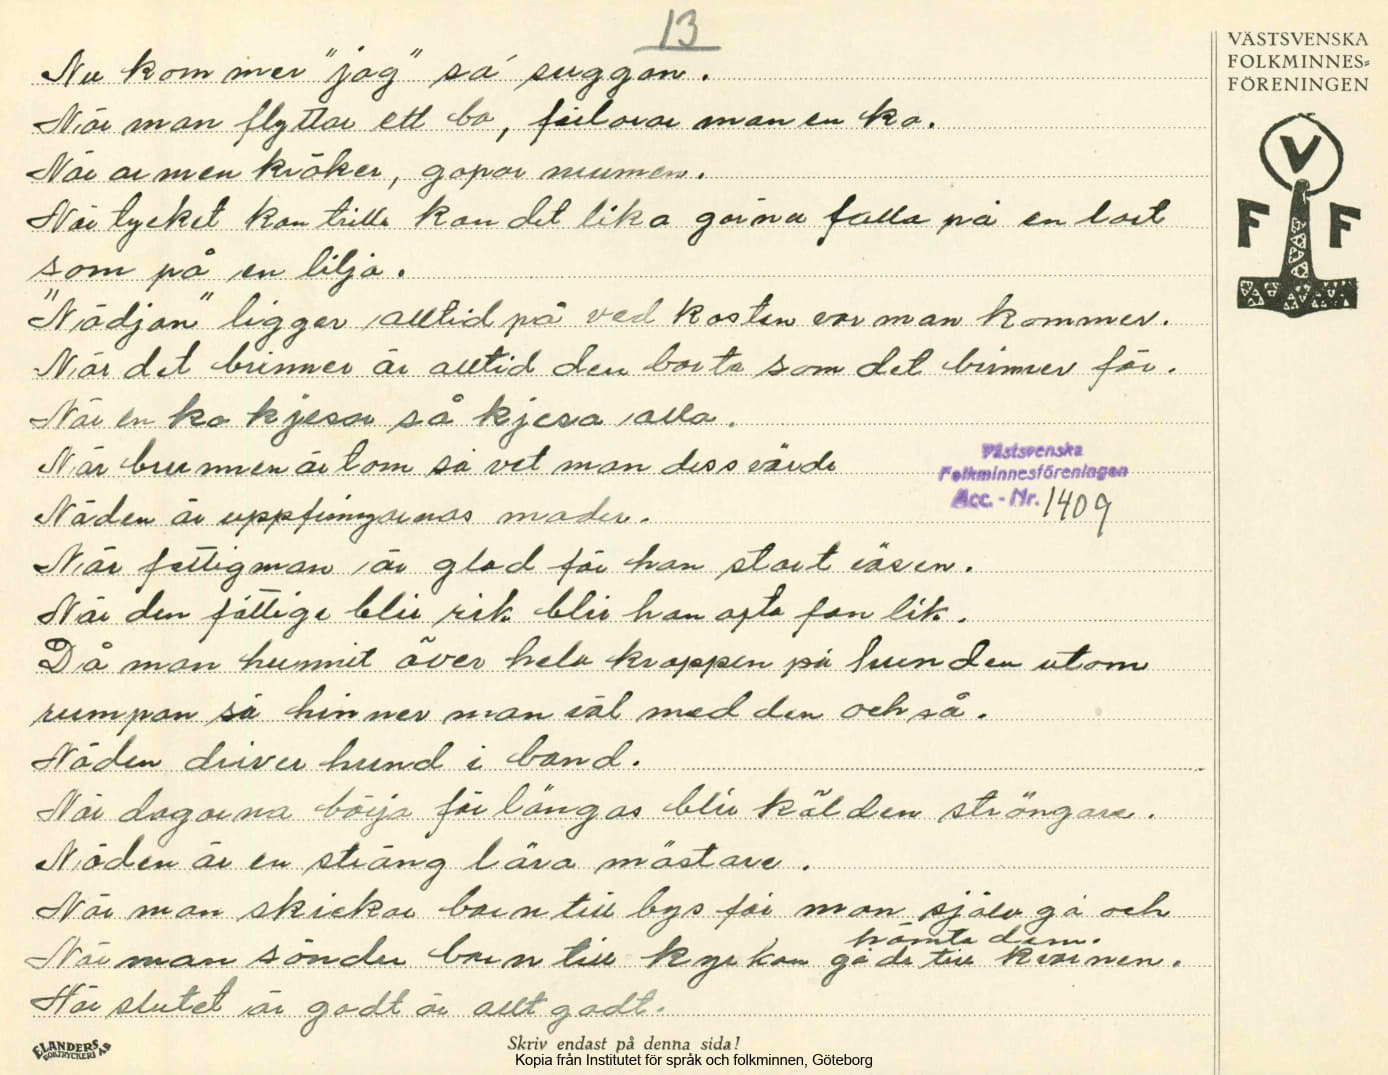 13
VÄSTSVENSKA
FOLKMINNES=
FÖRENINGEN
V
F F
Nu kommer "jag" sa' suggan.
När man flyttar ett bo, förlorar man en ko.
När armen kröker, gapar munnen.
När tycket kan trilla kan det lika gärna falla på en lort
som på en lilja.
"Nådjan" ligger alltid på ved kasten var man kommer.
När det brinner är alltid den borta som det brinner för.
När en ko kjesar så kjesa alla.
När brunnen är tom så vet man dess värde
Nöden är uppfinngarnas moder.
När fattigman är glad får han stort väsen.
När den fattige blir rik blir han ofta fan lik.
Då man hunnit över hela kroppen på hunden utom
rumpan så hinner man väl med den också.
Nöden driver hund i band.
När dagarna börja förlängas blir kälden strängare.
Nöden är en sträng lära mästare.
När man skickar barn till bys får man själv gå och
hämta dem.
När man sänder barn till kyrkan gå de till kvarnen.
När slutet är godt är allt godt.
Västsvenska
Folkminnesföreningen
Acc. - Nr. 1409
ELANDERS
BOKTRYCKERI AB
Skriv endast på denna sida!
Kopia från Institutet för språk och folkminnen, Göteborg